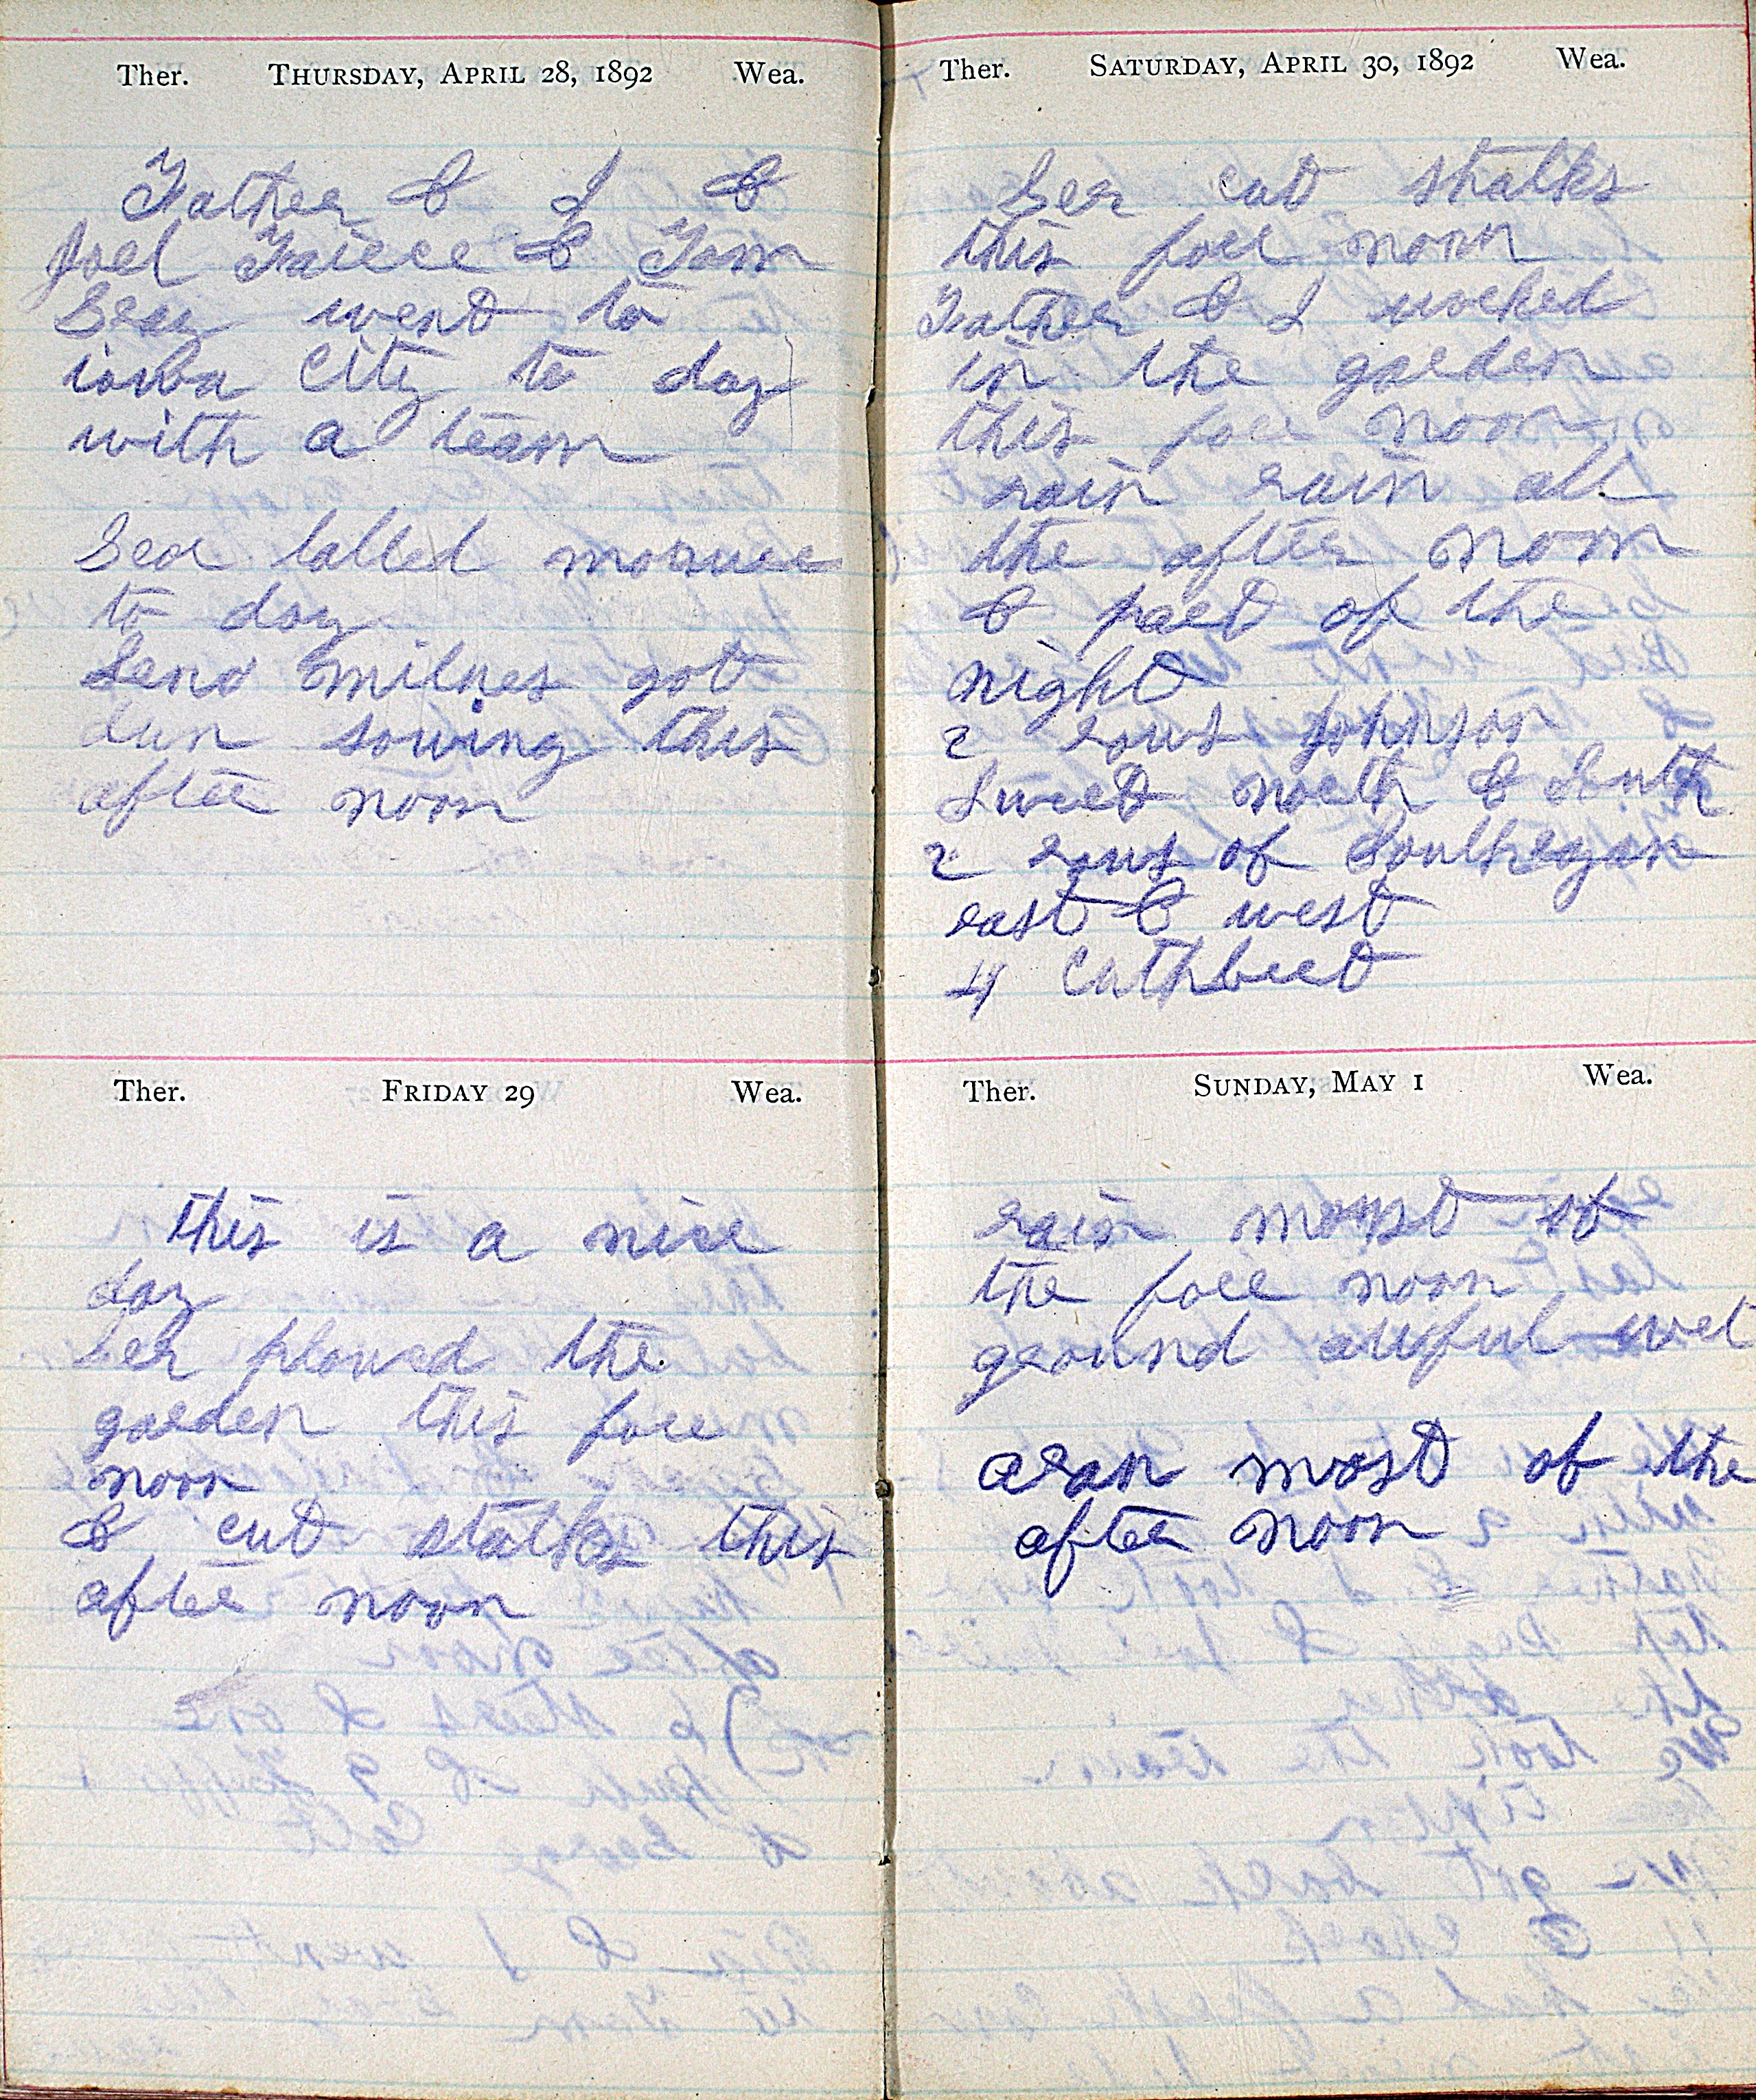 Ther. THURSDAY, APRIL 28, 1892 Wea.
Father & I &
Joel & Tom
Gray went to
iowa City to day
with a team
Geo
to day
Lend milnes got
dun sowing this
after noon
Ther. FRIDAY 29 Wea.
this is a nice
day
Ger plowed the
garden this fore
noon
& cut stalks this
after noon
Ther. SATURDAY, APRIL 30, 1892 Wea.
Ger cut stalks
this fore noon
Father & I worked
in the garden
this fore noon
rain rain all
the after noon
& part of the
night
2 rows johnson
Sweet north & South
2 rows of Souhegan
east & west
4 Cuthbert
Ther. SUNDAY, MAY 1 Wea.
rain most of
the fore noon
ground awful wet
aran most of the
after noon